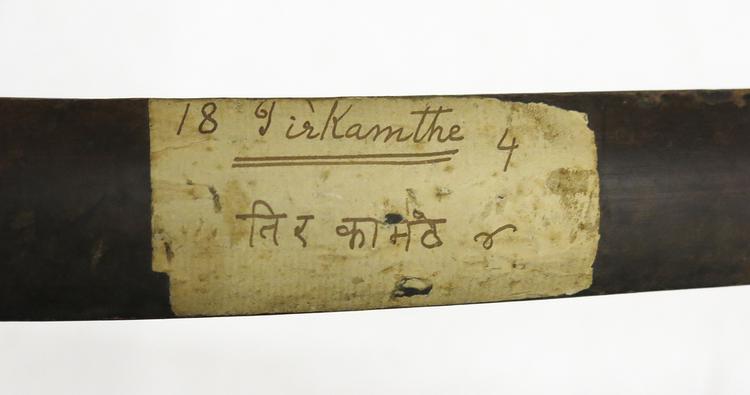 18 Tirkamthe 4
तिर कामठे ४